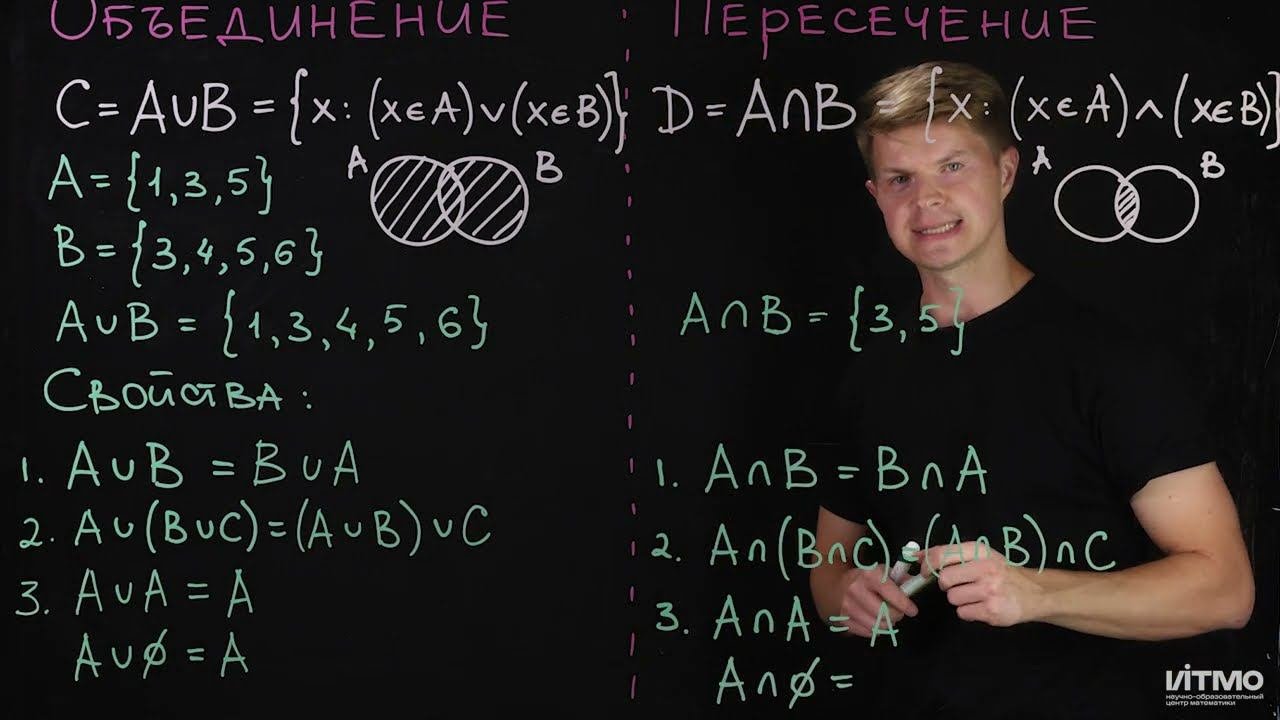 Объединение
C = A∪B = {x: (x∈A)∨(x∈B)}
A = {1,3,5}
A B
B = {3,4,5,6}
A∪B = {1,3,4,5,6}
Свойства:
1. A∪B = B∪A
2. A∪(B∪C)=(A∪B)∪C
3. A∪A = A
A∪∅ = A
Пересечение
D = A∩B = {x: (x∈A)∧(x∈B)}
A B
A∩B = {3,5}
1. A∩B = B∩A
2. A∩(B∩C)=(A∩B)∩C
3. A∩A = A
A∩∅ =
ИТМО
научно-образовательный
центр математики